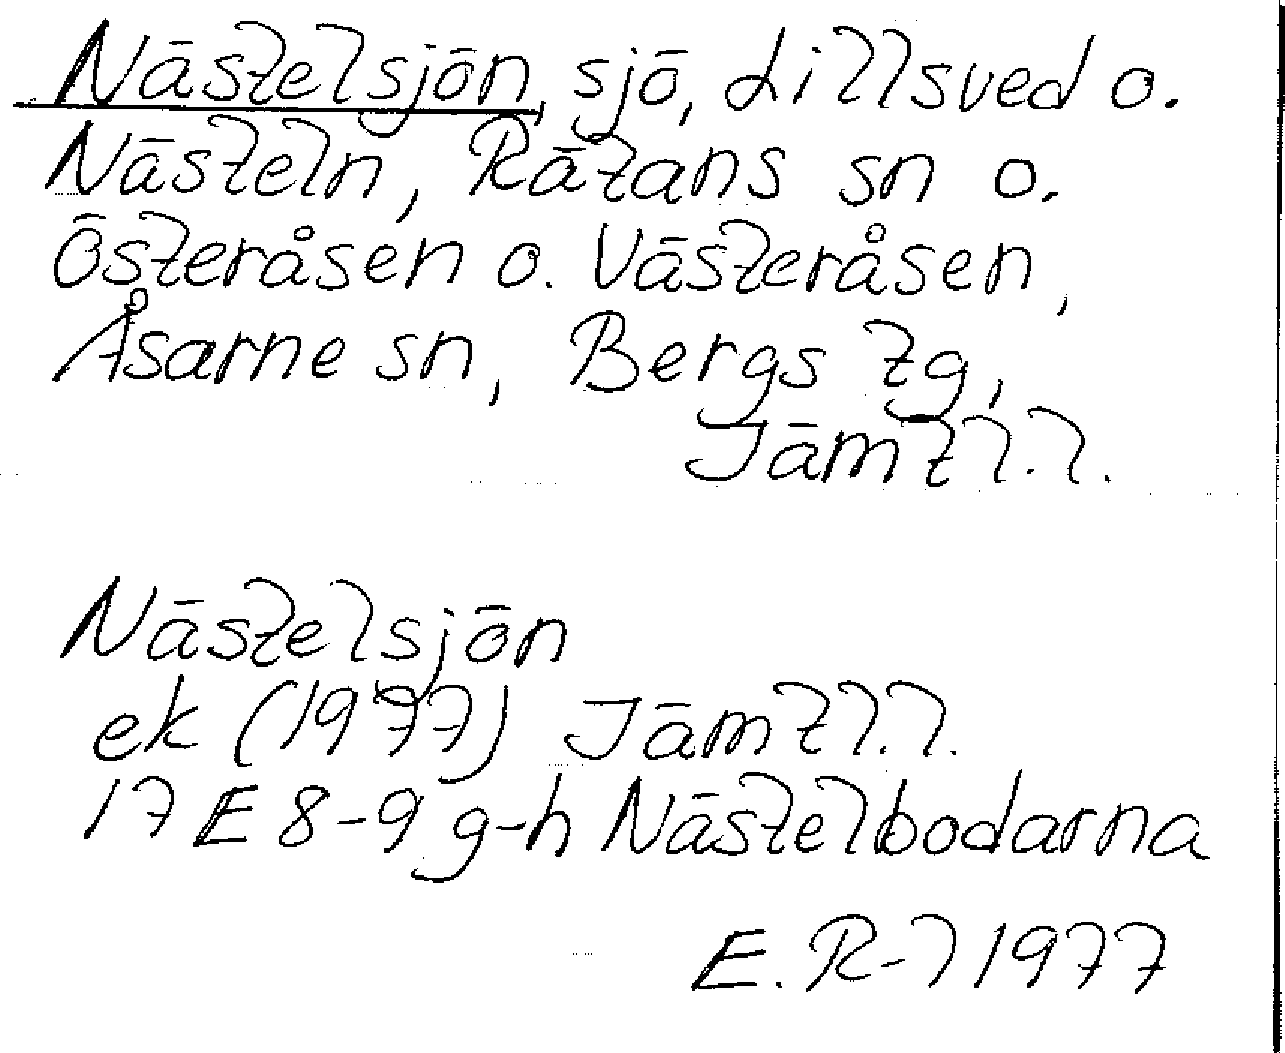 Nästelsjön, sjö, Lillsved o.
Nästeln, Rätans sn o.
Österåsen o. Västeråsen,
Åsarne sn, Bergs tg,
Jämtl.l.
Nästelsjön
ek (1977) Jämtl.l.
17 E 8-9 g-h Nästelbodarna
E. R-l 1977